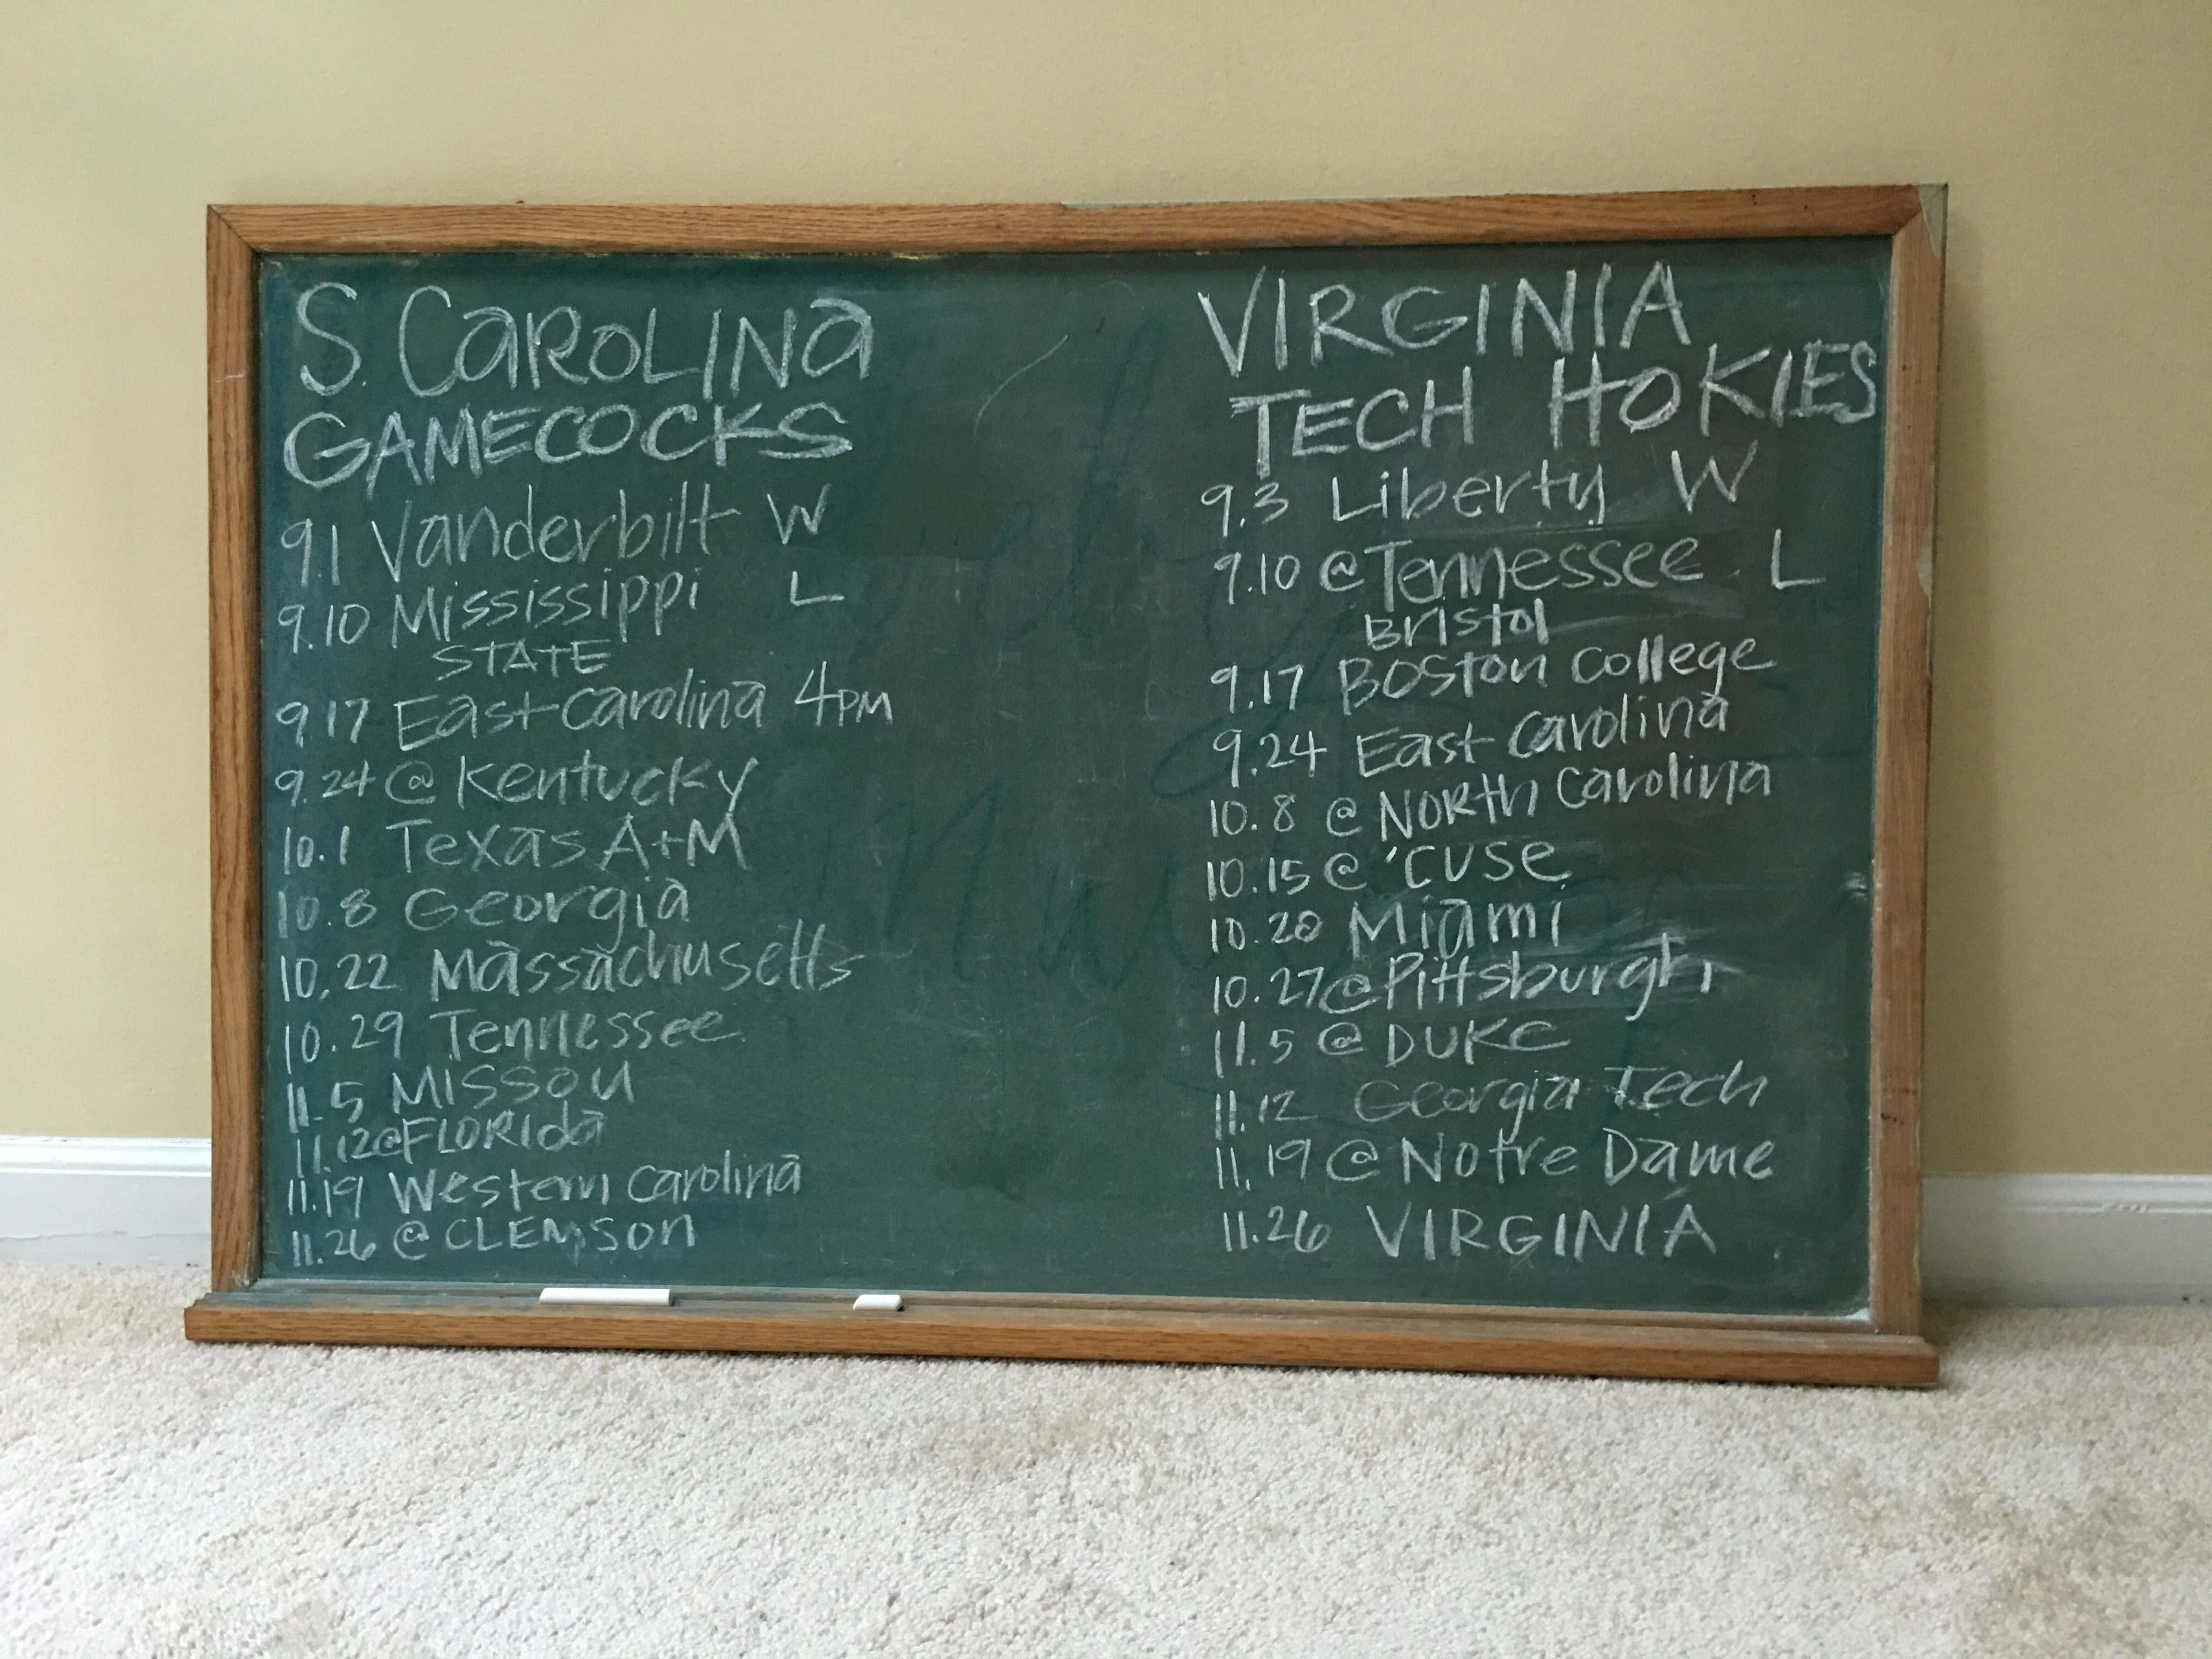 S. CAROLINA
GAMECOCKS
9.1 Vanderbilt W
9.10 Mississippi L
STATE
9.17 East Carolina 4PM
9.24 @ Kentucky
10.1 Texas A+M
10.8 Georgia
10.22 Massachusetts
10.29 Tennessee
11.5 MISSOU
11.12 @ FLORIDA
11.19 Western Carolina
11.26 @ CLEMSON
VIRGINIA
TECH HOKIES
9.3 Liberty W
9.10 @ Tennessee L
Bristol
9.17 Boston College
9.24 East Carolina
10.8 @ NORTH Carolina
10.15 @ 'CUSE
10.20 Miami
10.27 @ Pittsburgh
11.5 @ DUKE
11.12 Georgia Tech
11.19 @ Notre Dame
11.26 VIRGINIA